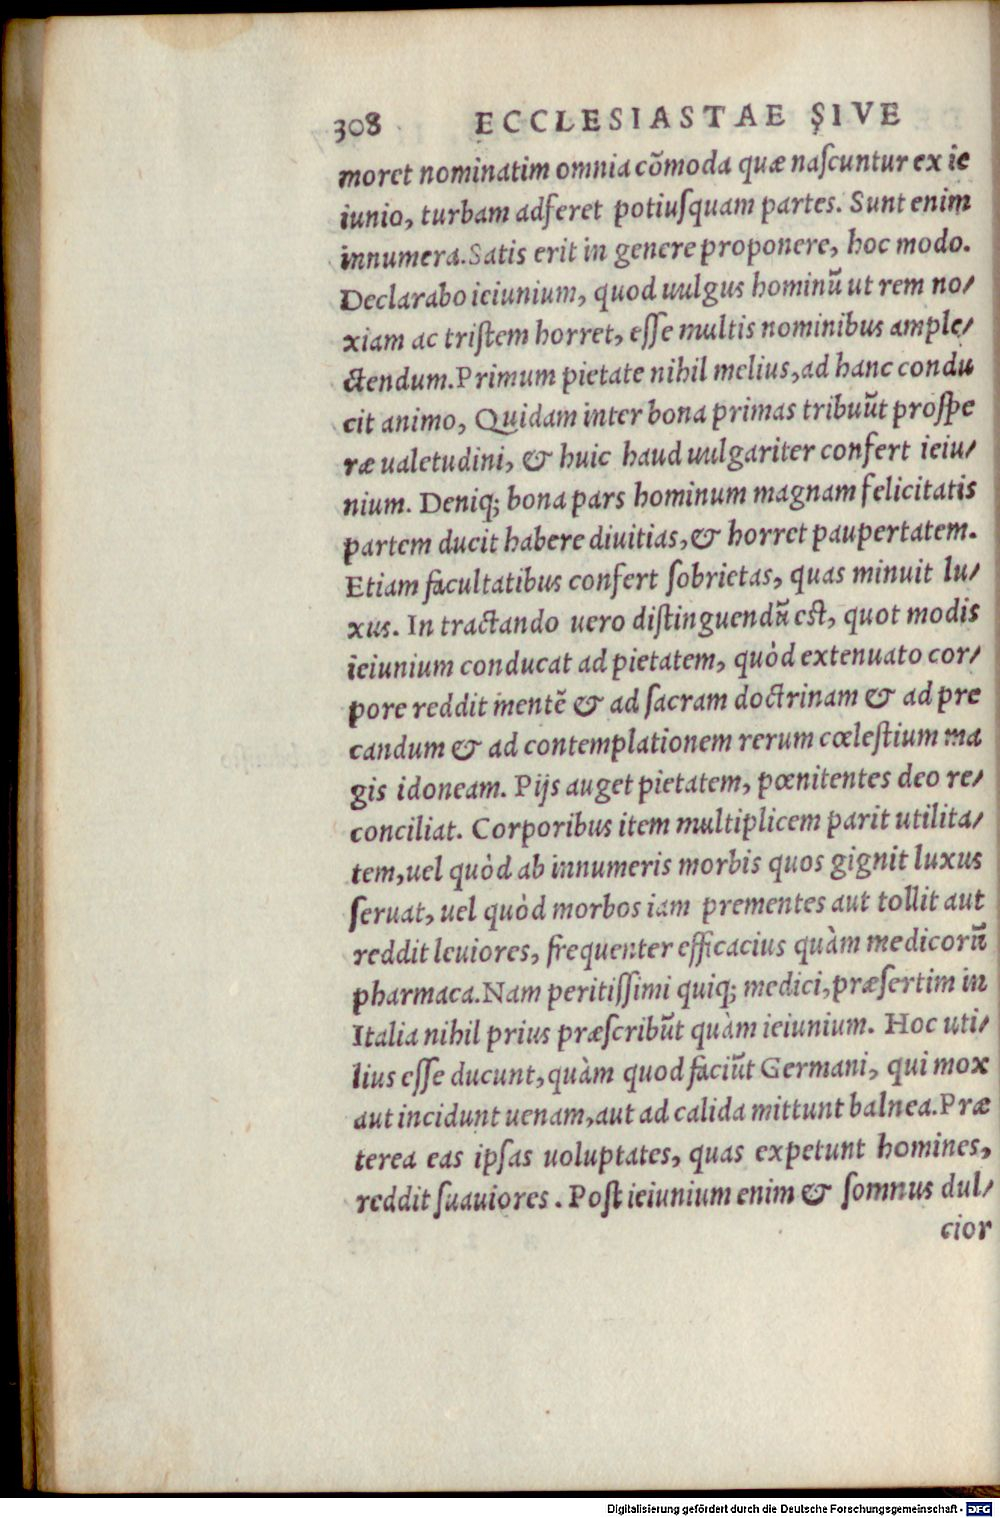 308 ECCLESIASTAE SIVE
moret nominatim omnia cõmoda quæ naſcuntur ex ie
iunio, turbam adferet potiuſquam partes. Sunt enim
innumera. Satis erit in genere proponere, hoc modo.
Declarabo ieiunium, quod uulgus hominũ ut rem no/
xiam ac triſtem horret, eſſe multis nominibus ample/
ctendum. Primum pietate nihil melius, ad hanc condu
cit animo, Quidam inter bona primas tribuũt proſpe
ræ ualetudini, & huic haud uulgariter confert ieiu/
nium. Deniq; bona pars hominum magnam felicitatis
partem ducit habere diuitias, & horret paupertatem.
Etiam facultatibus confert ſobrietas, quas minuit lu/
xus. In tractando uero diſtinguendũ eſt, quot modis
ieiunium conducat ad pietatem, quòd extenuato cor/
pore reddit mentẽ & ad ſacram doctrinam & ad pre
candum & ad contemplationem rerum cœleſtium ma
gis idoneam. Pijs auget pietatem, pœnitentes deo re/
conciliat. Corporibus item multiplicem parit utilita/
tem, uel quòd ab innumeris morbis quos gignit luxus
ſeruat, uel quòd morbos iam prementes aut tollit aut
reddit leuiores, frequenter efficacius quàm medicorũ
pharmaca. Nam peritiſſimi quiq; medici, præſertim in
Italia nihil prius præſcribũt quàm ieiunium. Hoc uti/
lius eſſe ducunt, quàm quod faciũt Germani, qui mox
aut incidunt uenam, aut ad calida mittunt balnea. Præ
terea eas ipſas uoluptates, quas expetunt homines,
reddit ſuauiores. Poſt ieiunium enim & ſomnus dul/
cior
Digitalisierung gefördert durch die Deutsche Forschungsgemeinschaft - DFG